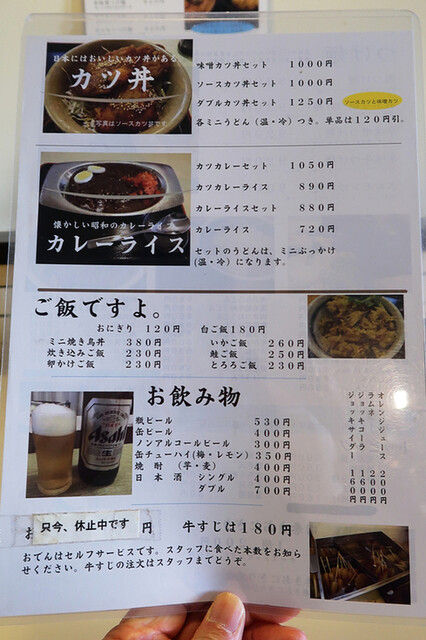 日本にはおいしいカツ丼がある。
カツ丼
写真はソースカツ丼です
味噌カツ丼セット 1000円
ソースカツ丼セット 1000円
ダブルカツ丼セット 1250円 ソースカツと味噌カツ
各ミニうどん（温・冷）つき。単品は120円引。
懐かしい昭和のカレーライス
カレーライス
カツカレーセット 1050円
カツカレーライス 890円
カレーライスセット 880円
カレーライス 720円
セットのうどんは、ミニぶっかけ
(温・冷）になります。
ご飯ですよ。
おにぎり 120円 白ご飯180円
ミニ焼き鳥丼 380円 いかご飯 260円
炊き込みご飯 230円 鮭ご飯 250円
卵かけご飯 230円 とろろご飯 230円
お飲み物
瓶ビール 530円
缶ビール 400円
ノンアルコールビール 300円
缶チューハイ(梅・レモン) 350円
焼酎 （芋・麦） 400円
日本酒 シングル 400円
ダブル 700円
オレンジジュース 120円
ラムネ 120円
ジョッキコーラ 160円
ジョッキサイダー 160円
Asahi
生
お 只今、休止中です 円 牛すじは180円
おでんはセルフサービスです。スタッフに食べた本数をお知ら
せください。牛すじの注文はスタッフまでどうぞ。